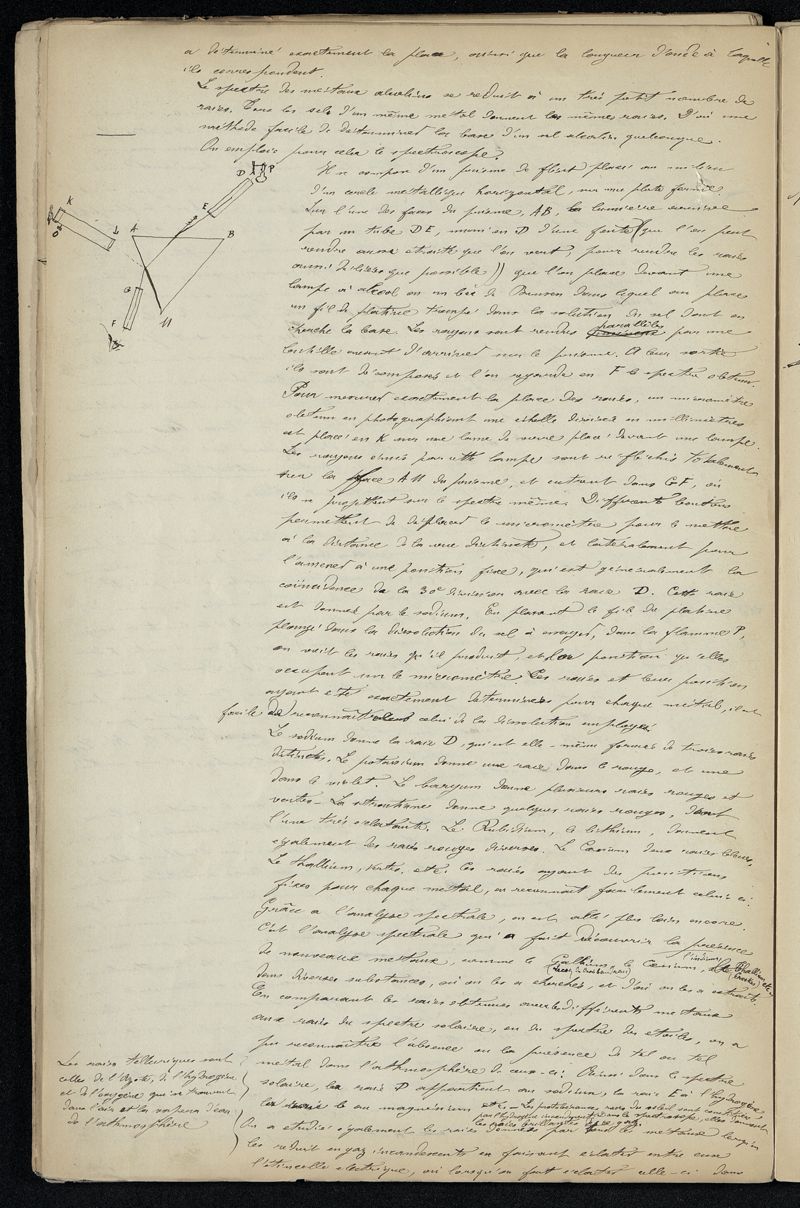 a déterminé exactement la place, ainsi que la longueur d'onde à laquelle
ils correspondent.
Le spectre des métaux alcalins se réduit à un très petit nombre de
raies. Tous les sels d'un même métal donnent les mêmes raies. D'où une
méthode facile de déterminer la base d'un sel alcalin quelconque.
On emploie pour cela le spectroscope.
Il se compose d'un prisme de flint placé au milieu
d'un cercle métallique horizontal, sur une plate forme.
Sur l'une des faces du prisme, AB, la lumière arrive
par un tube DE, muni en D d'une fente (que l'on peut
rendre aussi étroite que l'on veut, pour rendre les raies
aussi déliées que possible) que l'on place devant une
lampe à alcool ou un bec de Bunsen dans lequel on place
un fil de platine trempé dans la solution du sel dont on
cherche la base. Les rayons sont rendus parallèles par une
lentille avant d'arriver sur le prisme. A leur sortie
ils sont décomposés et l'on regarde en F le spectre obtenu.
Pour mesurer exactement la place des raies, un micromètre
obtenu en photographiant une échelle divisée en millimètres
est placé en K sur une lame de verre placé devant une lampe.
Les rayons émis par cette lampe sont réfléchis totalement
sur la face AM du prisme, et entrent dans GF, où
ils se projettent sur le spectre même. Différents boutons
permettent de déplacer le micromètre pour le mettre
à la distance de la vue distincte, et latéralement pour
l'amener à une position fixe, qui est généralement la
coïncidence de la 30e division avec la raie D. Cette raie
est donnée par le sodium. En plaçant le fil de platine
plongé dans la dissolution du sel à essayer, dans la flamme P,
on voit les raies qu'il produit, et la position qu'elles
occupent sur le micromètre. Les raies et leurs positions
ayant été exactement déterminées pour chaque métal, il est
facile de reconnaître celui de la dissolution employée.
Le sodium donne la raie D, qui est elle-même formée de raies
distinctes. Le potassium donne une raie dans le rouge, et une
dans le violet. Le baryum donne plusieurs raies rouges et
vertes. La strontiane donne quelques raies rouges, dont
l'une très éclatante. Le Rubidium, le lithium, donnent
également des raies rouges diverses. Le Caesium deux raies bleues,
Le thallium, vertes, etc. Ces raies ayant des positions
fixes pour chaque métal, on reconnaît facilement celui-ci.
Grâce à l'analyse spectrale, on est allé plus loin encore.
C'est l'analyse spectrale qui a fait découvrir la présence
de nouveaux métaux, comme le Gallium, le Caesium, (l'indium) le Thallium etc.
(Lecoq de Boisbaudran)
dans diverses substances, où on les a cherchés, et d'où on les a extraits.
En comparant les raies obtenues avec les différents métaux
aux raies du spectre solaire, ou du spectre des étoiles, on a
pu reconnaître l'absence ou la présence de tel ou tel
métal dans l'athmosphère de ceux-ci. Ainsi dans le spectre
solaire, la raie D appartient au sodium, la raie F à l'hydrogène,
la raie b au magnésium etc. — Les protubérances roses du soleil sont constituées
par l'hydrogène incandescent dans le spectroscope, elles donnent
les raies brillantes de ce gaz.
On a étudié également les raies données par les métaux lorsqu'on
les réduit en gaz incandescents en faisant éclater entre eux
l'étincelle électrique, où lorsqu'on fait éclater celle-ci dans
Les raies telluriques sont
celles de l'Azote, de l'hydrogène
et de l'oxygène qui se trouvent
dans l'air et la vapeur d'eau
de l'athmosphère
K
O
L
A
B
M
D
P
E
G
F